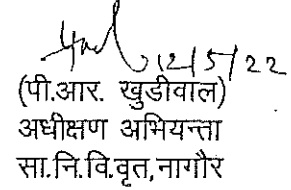 12/5/22
(पी.आर. खुडीवाल)
अधीक्षण अभियन्ता
सा.नि.वि.वृत,नागौर